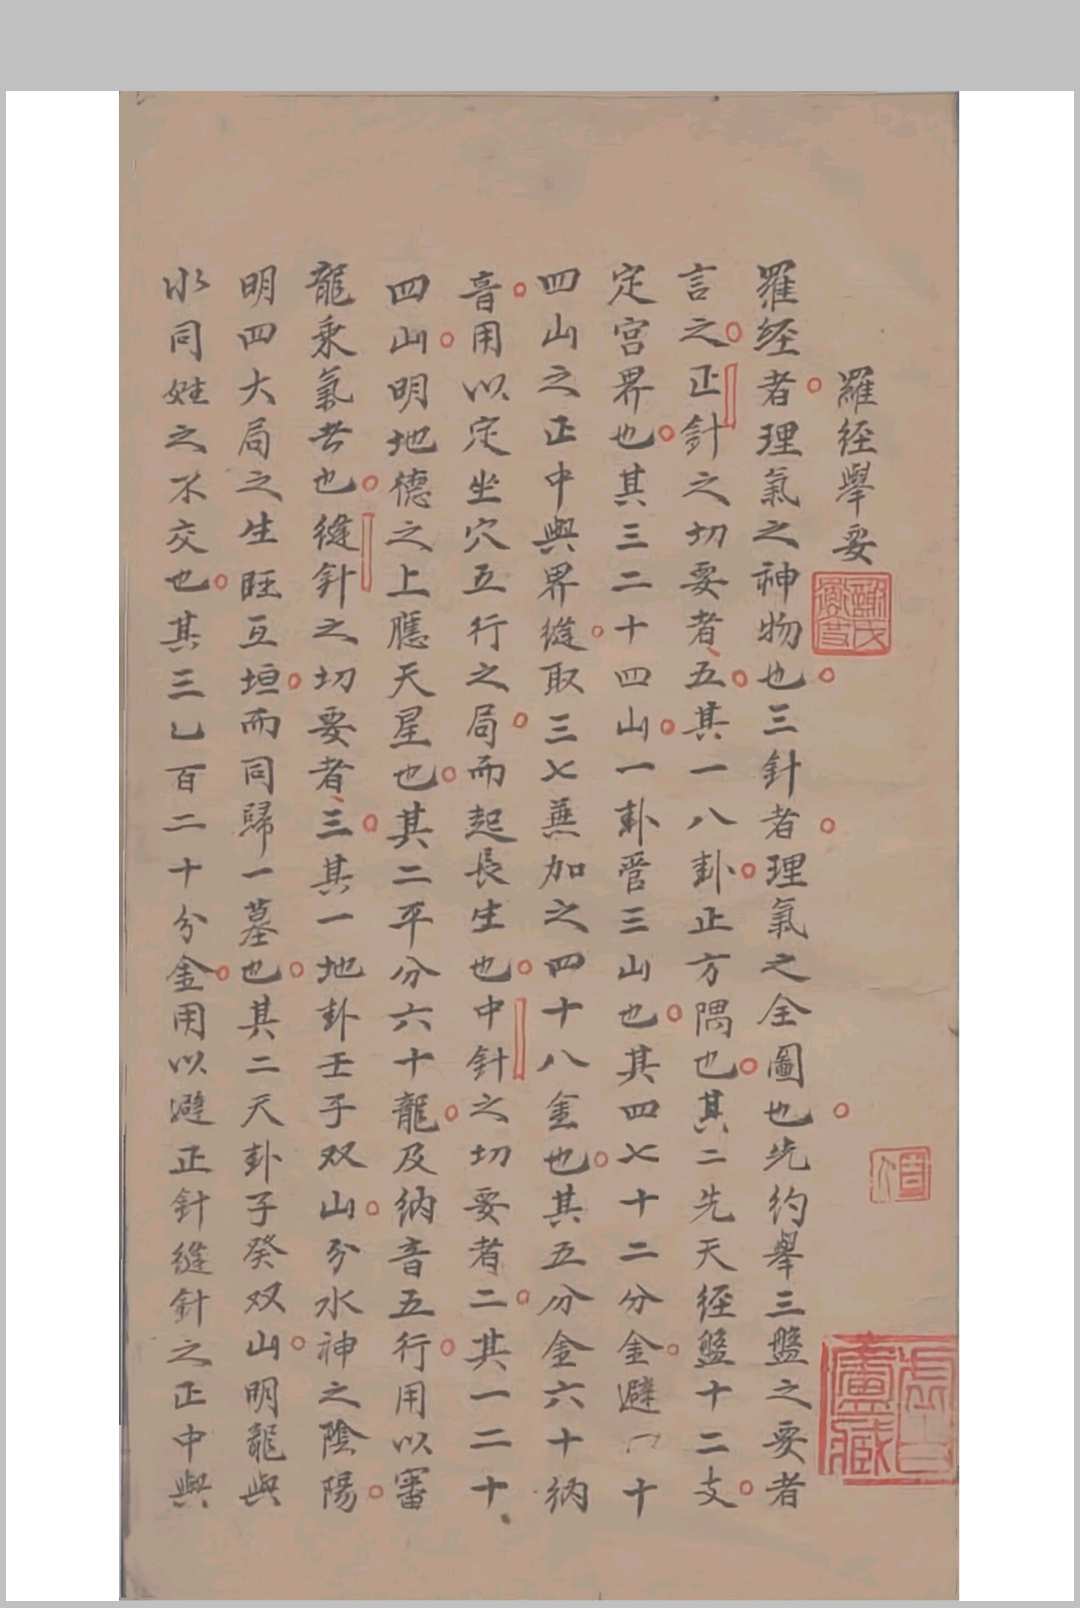 羅経舉要
羅経者理氣之神物也三針者理氣之全圖也先約舉三盤之要者
言之正針之切要者五其一八卦止方隅也其二先天経盤十二支
定宮界也其三二十四山一卦管三山也其四七十二分金避十
四山之正中與界縫取三七兼加之四十八金也其五分金六十納
音用以定坐穴五行之局而起長生也中針之切要者二其一二十
四山明地德之上應天星也其二平分六十龍及納音五行用以審
龍乘氣者也縫針之切要者三其一地卦壬子双山分水神之陰陽
明四大局之生旺互垣而同歸一墓也其二天卦子癸双山明龍與
水同姓之不交也其三乚百二十分金用以避正針縫針之正中與
盧藏